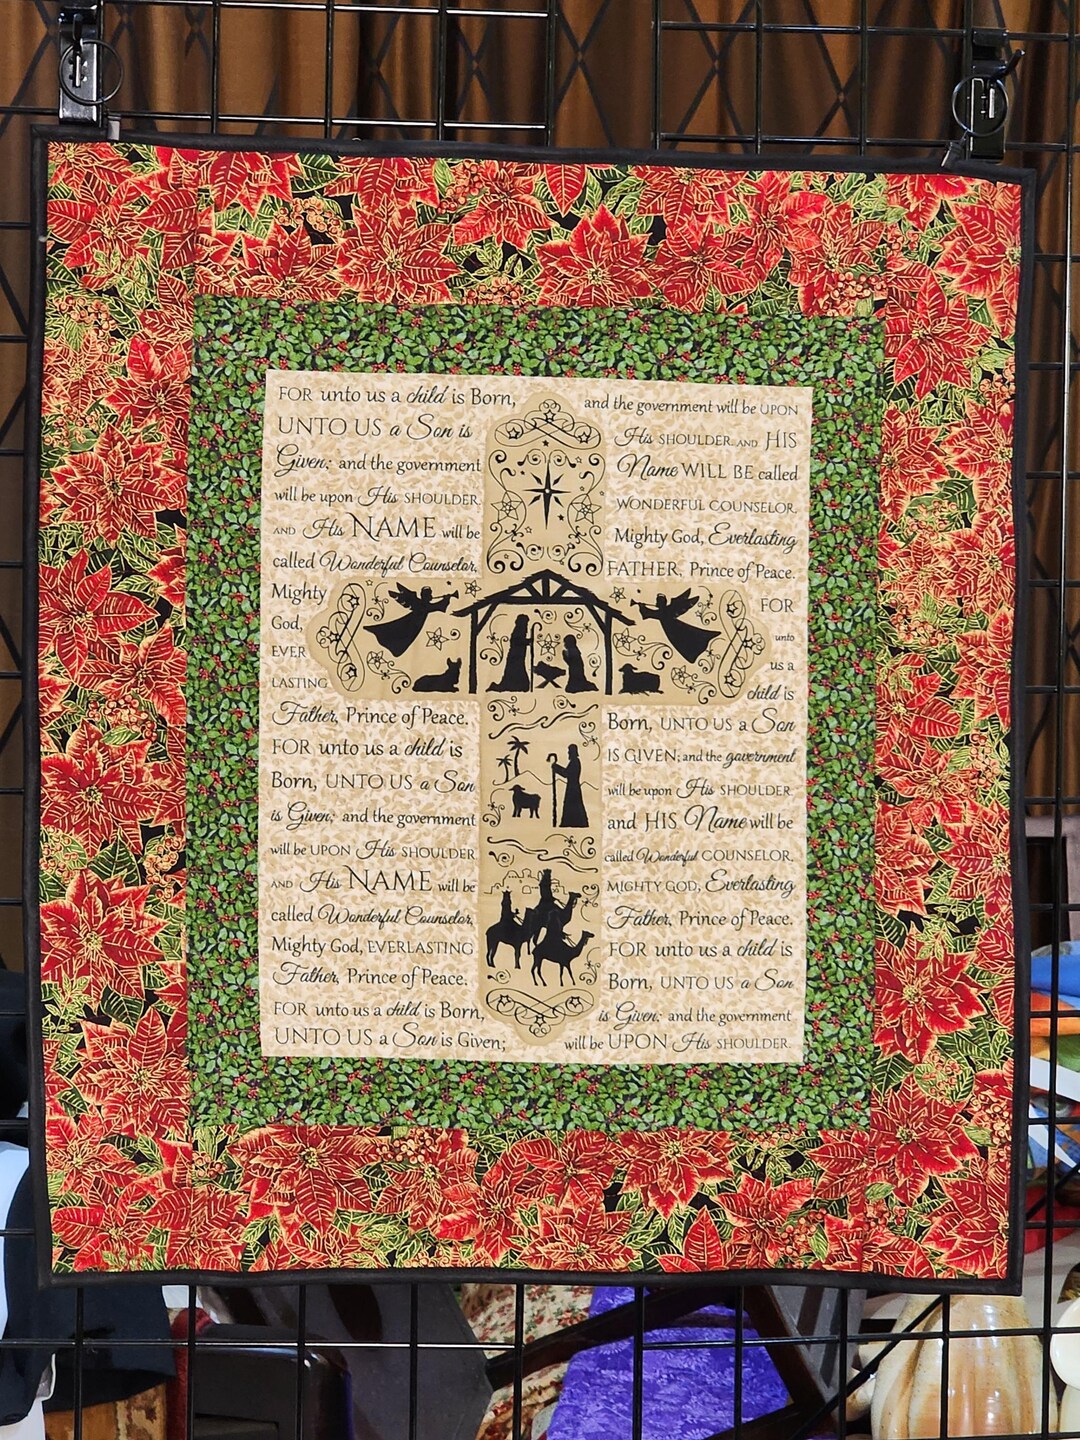 FOR unto us a child is Born,
UNTO US a Son is
Given; and the government
will be upon His SHOULDER
AND His NAME will be
called Wonderful Counselor,
Mighty
God,
EVER
LASTING
Father, Prince of Peace.
FOR unto us a child is
Born, UNTO US a Son
is Given; and the government
will be UPON His SHOULDER
AND His NAME will be
called Wonderful Counselor,
Mighty God, EVERLASTING
Father, Prince of Peace.
FOR unto us a child is Born,
UNTO US a Son is Given;
and the government will be UPON
His SHOULDER AND HIS
Name WILL BE called
WONDERFUL COUNSELOR,
Mighty God, Everlasting
FATHER, Prince of Peace.
FOR
unto
us a
child is
Born, UNTO US a Son
IS GIVEN; and the government
will be upon His SHOULDER
and HIS Name will be
called Wonderful COUNSELOR,
MIGHTY GOD, Everlasting
Father, Prince of Peace.
FOR unto us a child is
Born, UNTO US a Son
is Given; and the government
will be UPON His SHOULDER.